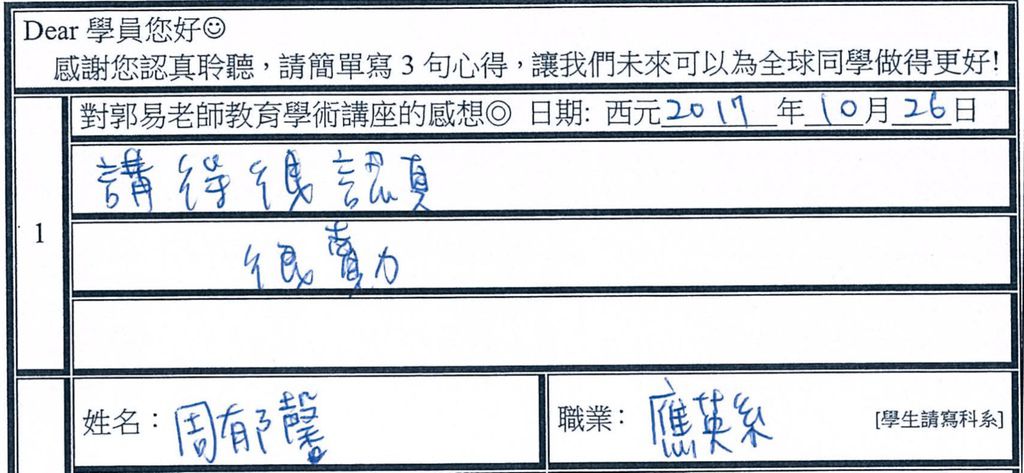 Dear 學員您好☺
感謝您認真聆聽，請簡單寫 3 句心得，讓我們未來可以為全球同學做得更好!
對郭易老師教育學術講座的感想◎ 日期: 西元2017年10月26日
1
講得很認真
很賣力
姓名：周郁馨
職業：應英系 [學生請寫科系]